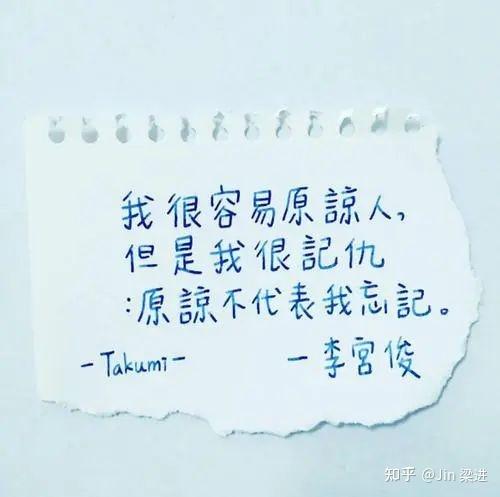 我很容易原諒人,
但是我很記仇
:原諒不代表我忘記。
-Takumi-
一李宮俊
知乎 @Jin 梁进